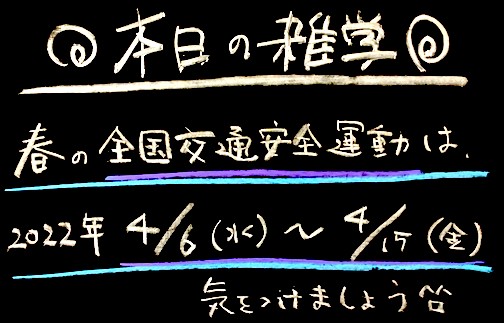 本日の雑学
春の全国交通安全運動は、
2022年 4/6(水)～4/15(金)
気をつけましょう